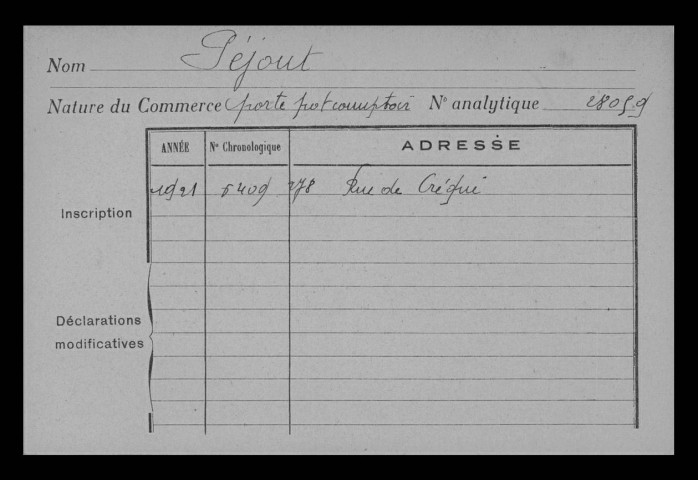 Nom Péjout
Nature du Commerce porte pot comptoir N° analytique 28059
ANNÉE N° Chronologique ADRESSE
Inscription 1921 6409 278 Rue de Créqui
Déclarations
modificatives